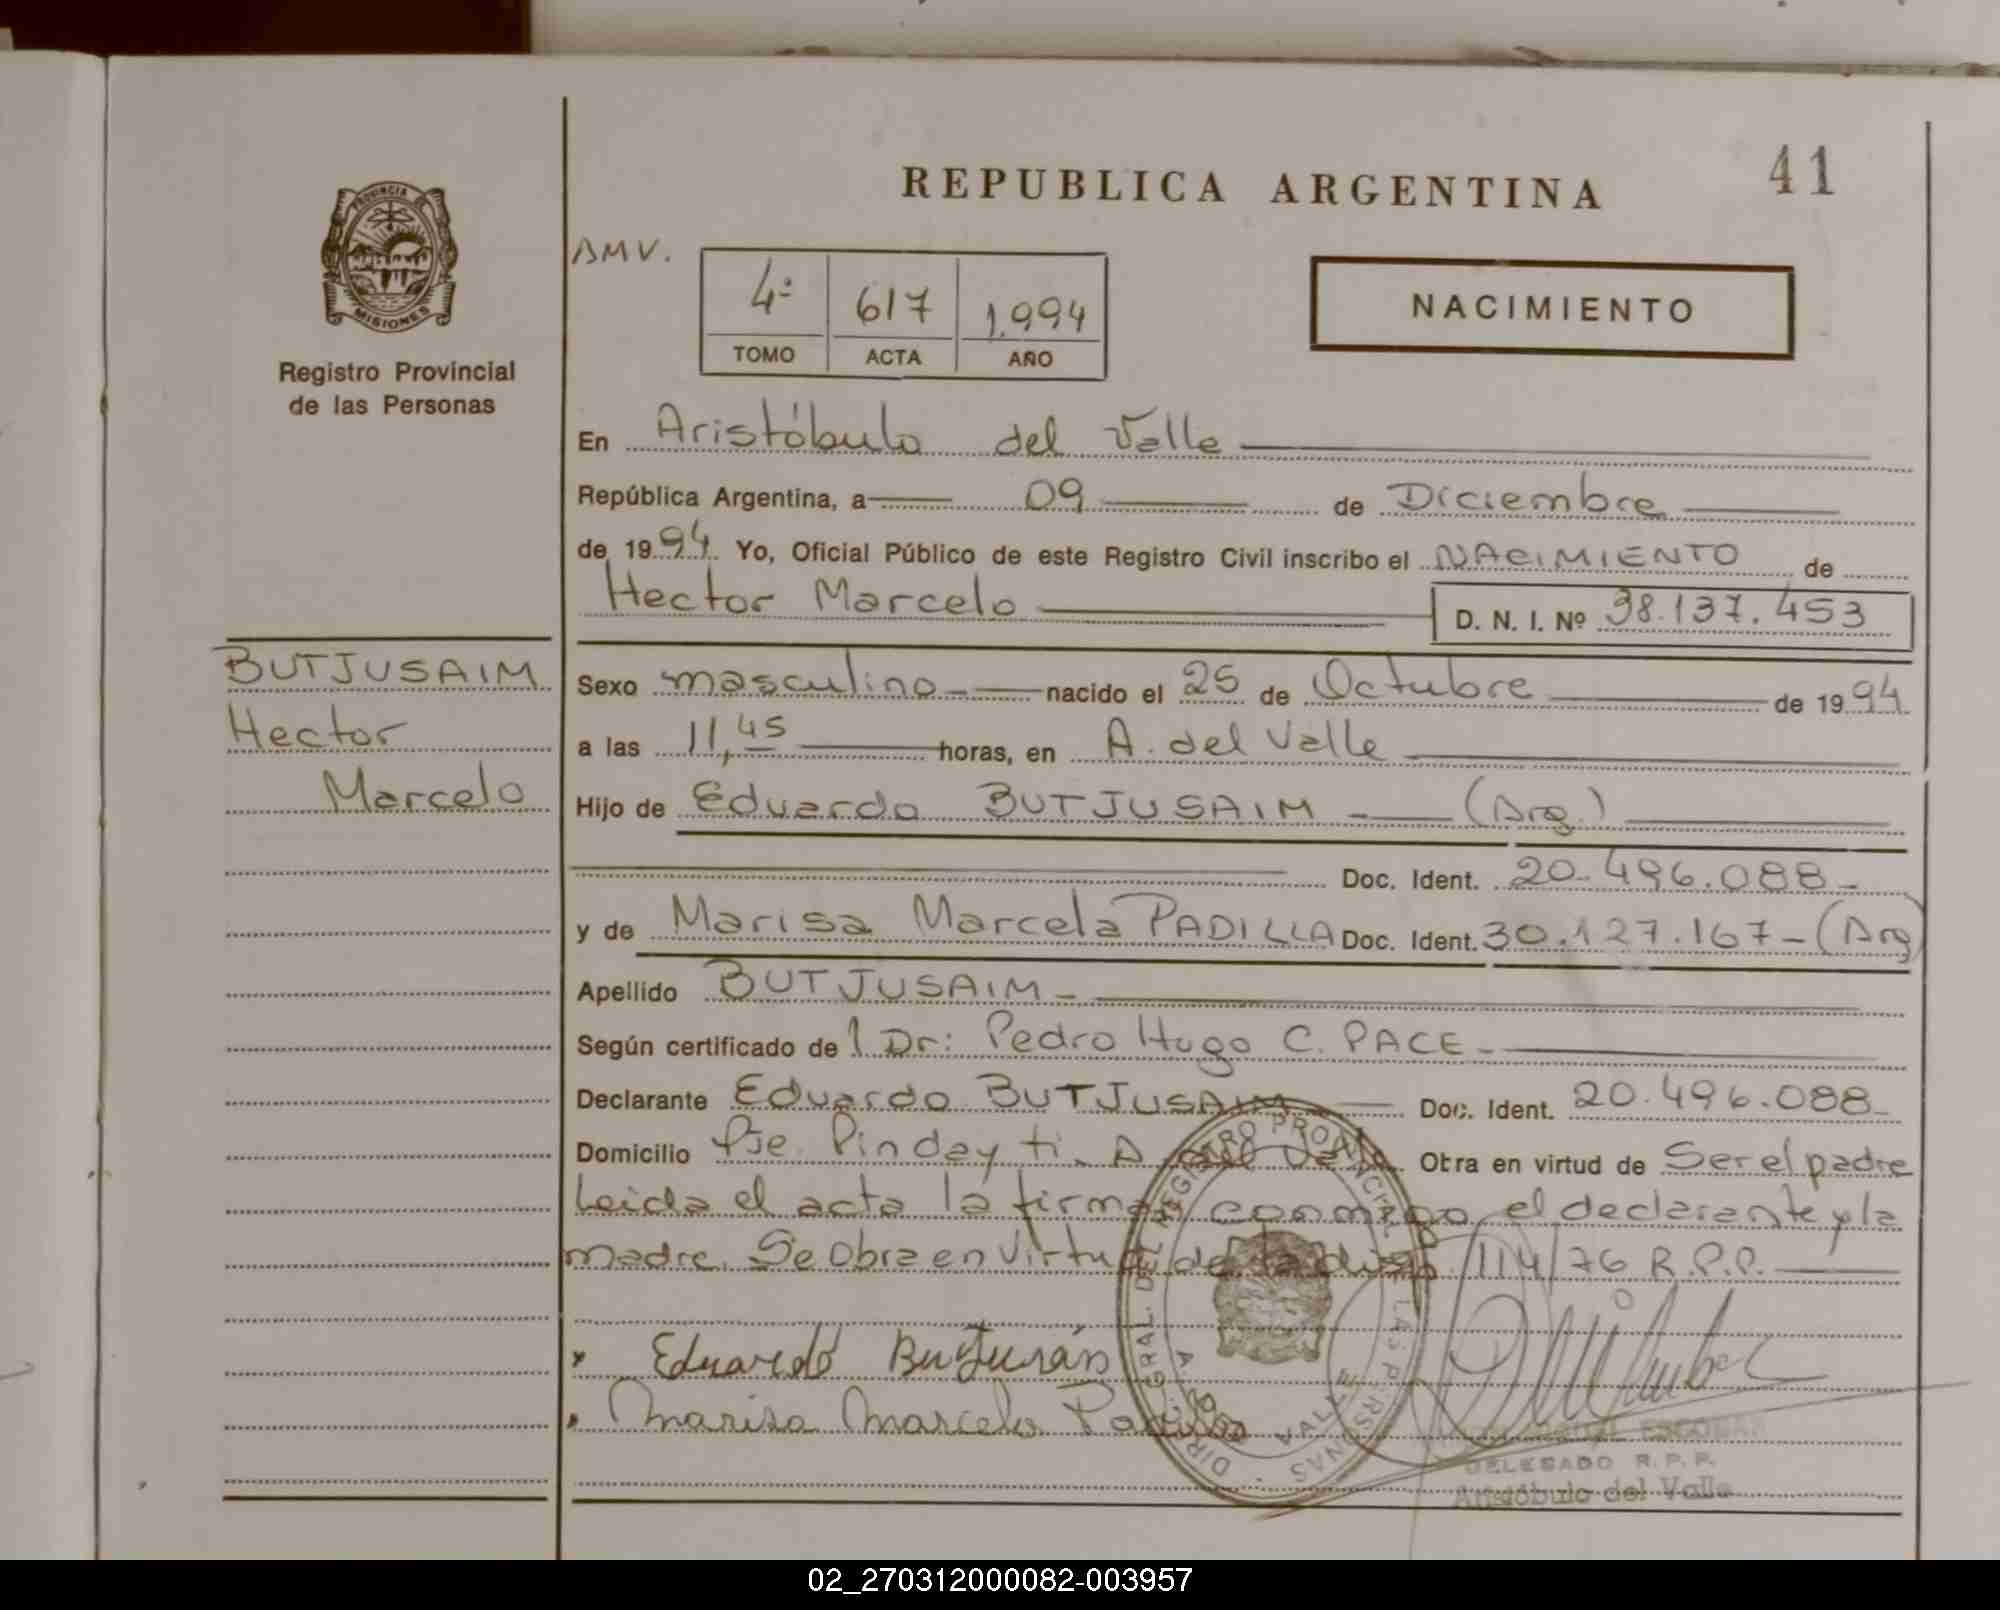 REPUBLICA ARGENTINA
41
PROVINCIA DE
MISIONES
Registro Provincial
de las Personas
AMV.
4º 617 1.994
TOMO ACTA AÑO
NACIMIENTO
En Aristóbulo del Valle
República Argentina, a 09 de Diciembre
de 1994. Yo, Oficial Público de este Registro Civil inscribo el NACIMIENTO de
Hector Marcelo D. N. I. Nº 38.137.453
BUTJUSAIM
Hector
Marcelo
Sexo masculino nacido el 25 de Octubre de 1994
a las 11,45 horas, en A. del Valle
Hijo de Eduardo BUTJUSAIM (Arg.)
Doc. Ident. 20.496.088-
y de Marisa Marcela PADILLA Doc. Ident. 30.127.167-(Arg)
Apellido BUTJUSAIM-
Según certificado de l Dr: Pedro Hugo C. PACE-
Declarante Eduardo BUTJUSAIM Doc. Ident. 20.496.088-
Domicilio Pje. Pindayti. A del Valle Obra en virtud de Ser el padre
Leida el acta la firman conmigo el declarante y la
madre. Se Obra en Virtud de la disp. 114/76 R.P.P.
Eduardo
Marisa Marcela Padilla
DIR. GRAL. DEL REGISTRO PROVINCIAL DE LAS PERSONAS
A. DEL VALLE
ESCOBAR
DELEGADO R.P.P.
Aristóbulo del Valle
02_270312000082-003957